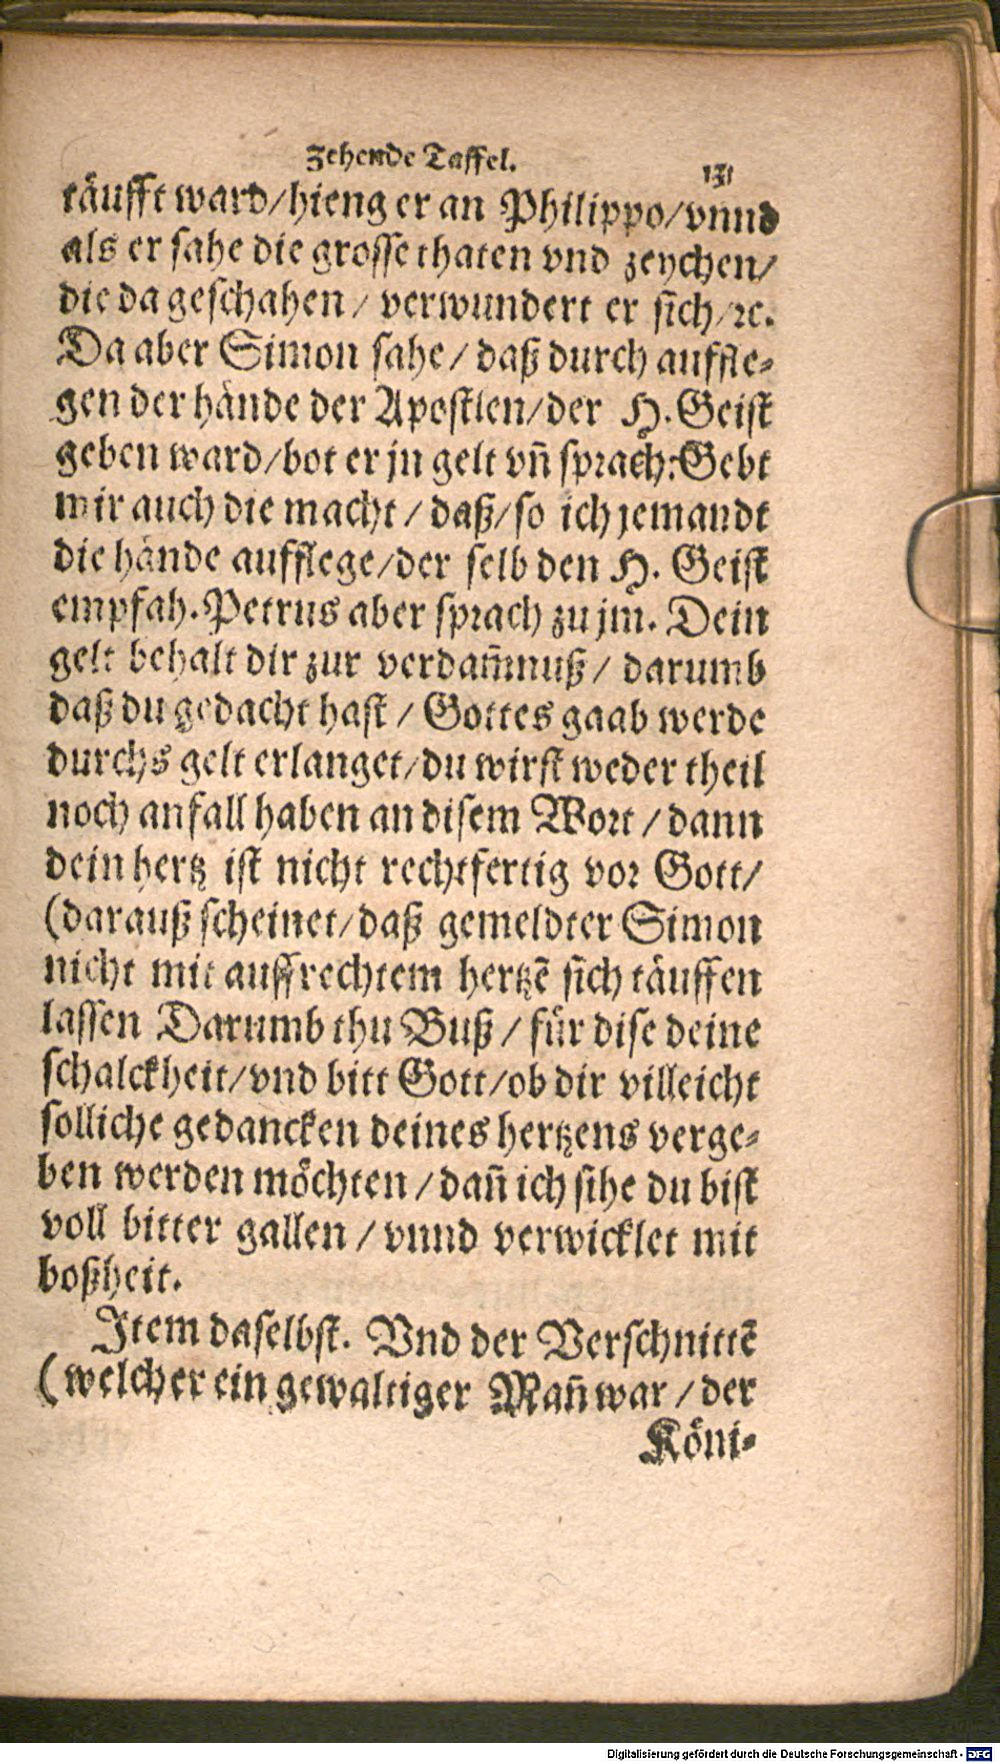 Zehende Taffel. 131
täufft ward/hieng er an Philippo/vnnd
als er sahe die grosse thaten vnd zeychen/
die da geschahen/ verwundert er sich/ꝛc.
Da aber Simon sahe/ daß durch auffle-
gen der hände der Apostlen/der H. Geist
geben ward/bot er jn gelt vñ sprach: Gebt
mir auch die macht/ daß/so ich jemandt
die hände aufflege/der selb den H. Geist
empfah. Petrus aber sprach zu jm. Dein
gelt behalt dir zur verdam̃nuß/ darumb
daß du gedacht hast/ Gottes gaab werde
durchs gelt erlanget/du wirst weder theil
noch anfall haben an disem Wort/ dann
dein hertz ist nicht rechtfertig vor Gott/
(darauß scheinet/daß gemeldter Simon
nicht mit auffrechtem hertzẽ sich täuffen
lassen Darumb thu Buß/ für dise deine
schalckheit/vnd bitt Gott/ob dir villeicht
solliche gedancken deines hertzens verge-
ben werden möchten/dañ ich sihe du bist
voll bitter gallen/ vnnd verwicklet mit
boßheit.
Item daselbst. Vnd der Verschnittẽ
(welcher ein gewaltiger Mañ war/ der
Köni-
Digitalisierung gefördert durch die Deutsche Forschungsgemeinschaft - DFG